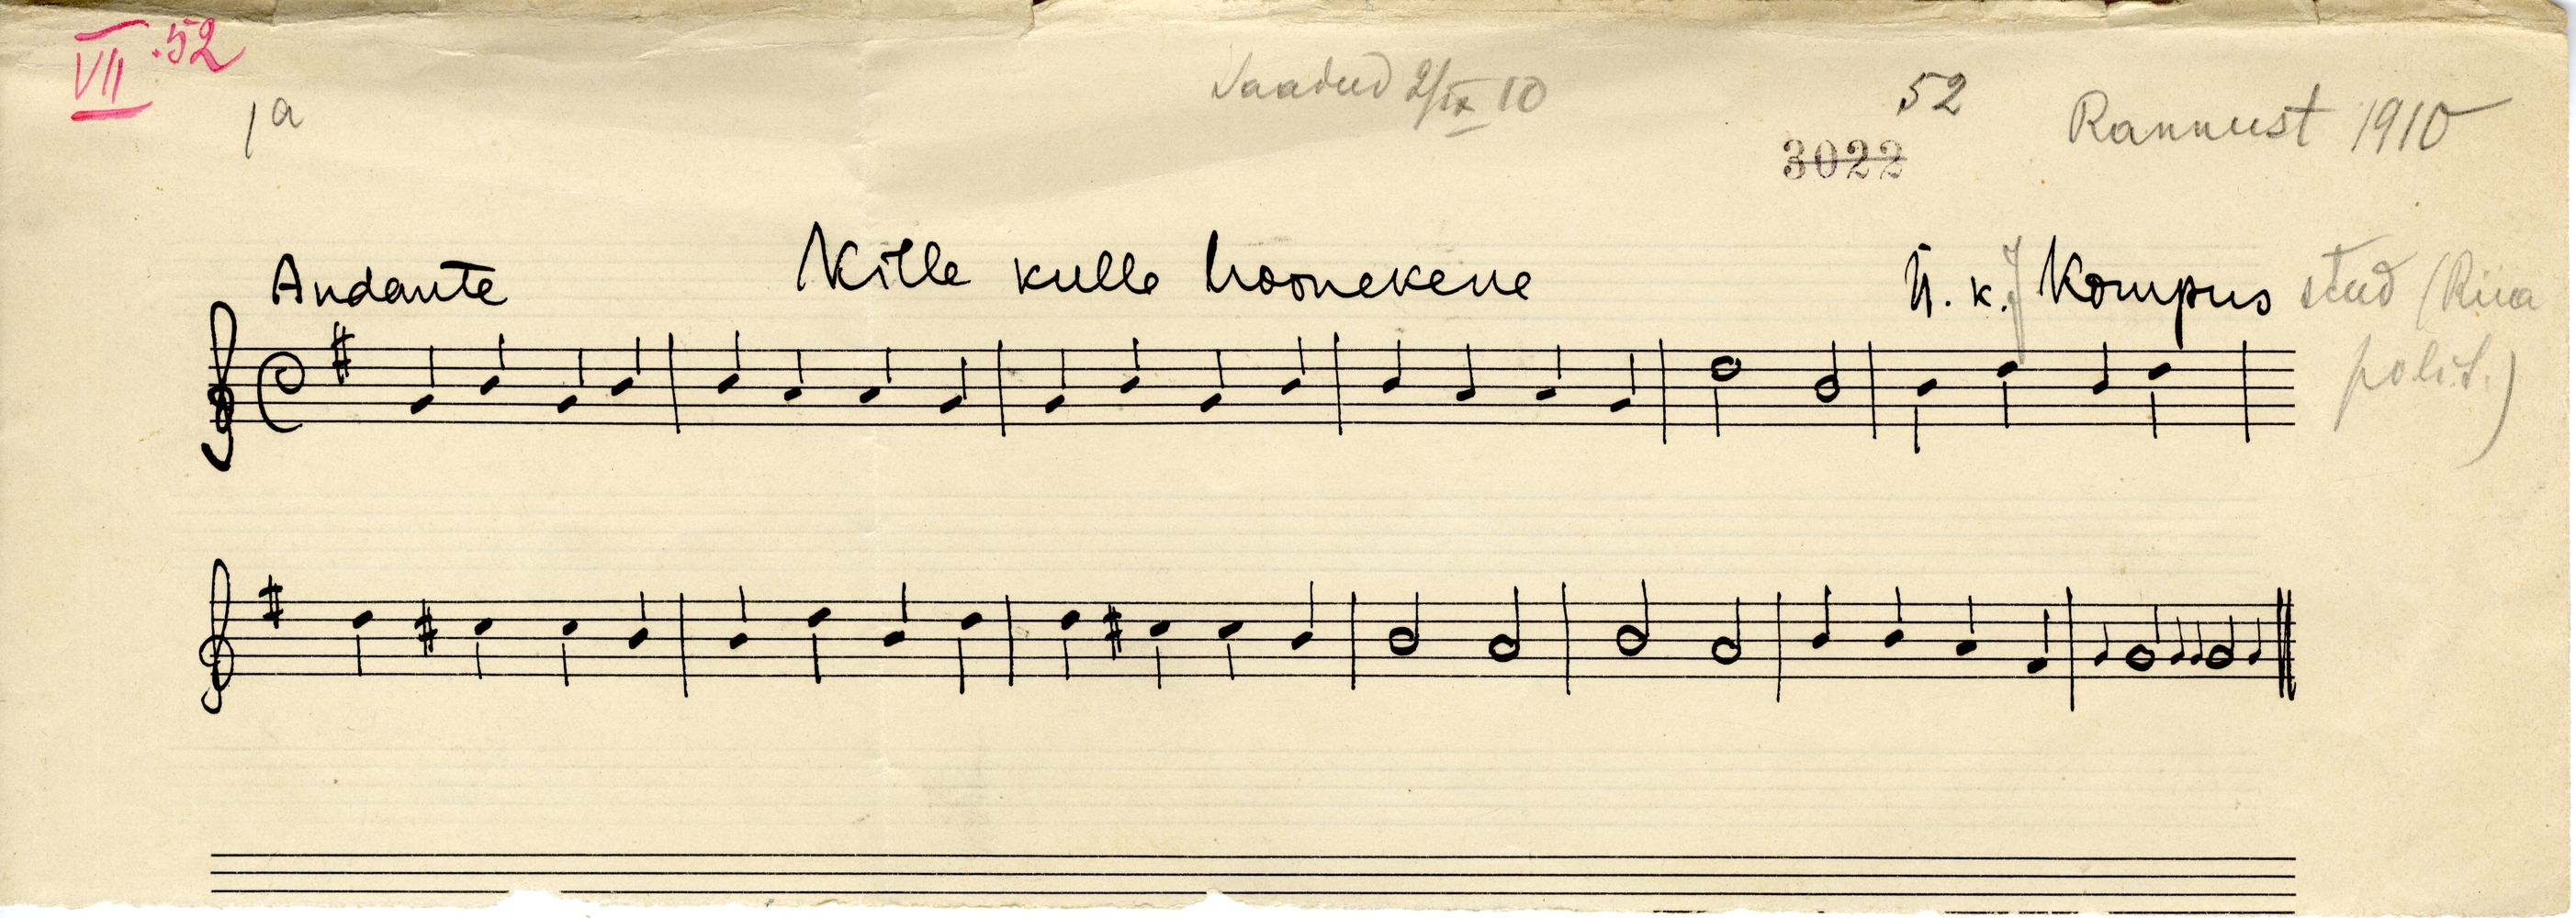 VII.52
1a
Saadud 2/IX 10
52
3022
Rannust 1910
Andante
Kille kulle hoonekene
Ü. k. J Kompus stud (Riia
polit.)